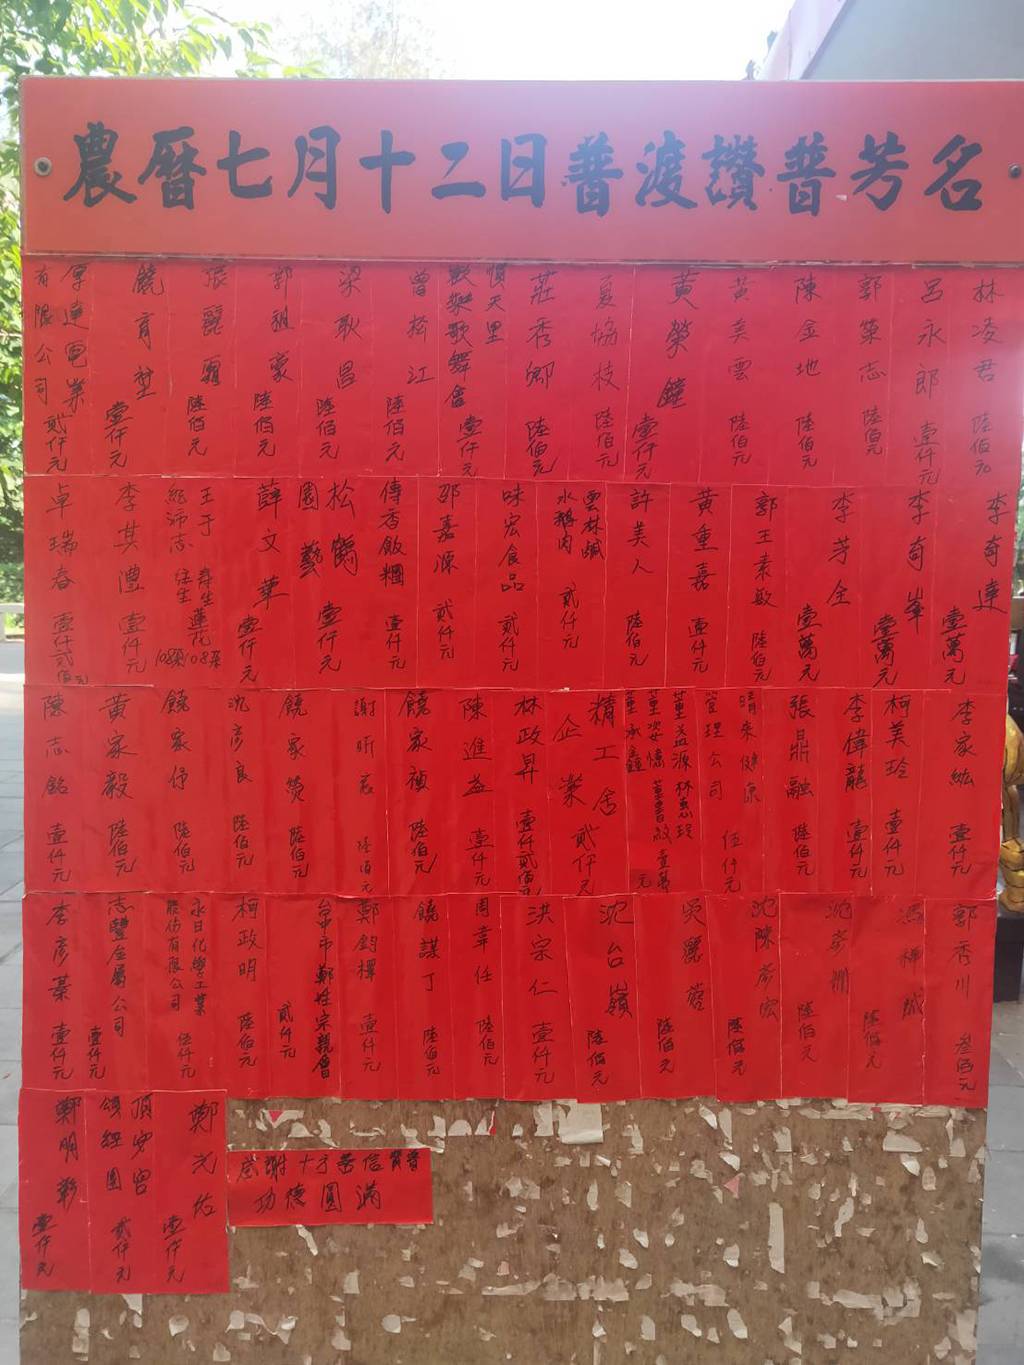 農曆七月十二日普渡讚普芳名
林凌君 陸佰元
呂永郎 壹仟元
郭榮志 陸佰元
陳金地 陸佰元
黃美雲 陸佰元
黃榮鐘 壹仟元
夏協枝 陸佰元
莊秀卿 陸佰元
慎天里
歡樂歌舞會 壹仟元
曾 江 陸佰元
梁耿昌 陸佰元
郭祖豪 陸佰元
張麗 陸佰元
饒育 壹仟元
厚達電業
有限公司 貳仟元
李奇達 壹萬元
李奇峯 壹萬元
李芳全 壹萬元
郭王素敏 陸佰元
黃重嘉 壹仟元
許美人 陸佰元
雲林鹹
水鵝肉 貳仟元
味宏食品 貳仟元
邵嘉源 貳仟元
傳香飯糰 壹仟元
松鶴
園藝 壹仟元
薛文華 壹仟元
王于 壽生蓮花108朵
沛志 往生 108朵
李其澧 壹仟元
卓瑞春 壹仟貳佰元
李家紘 壹仟元
柯美玲 壹仟元
李偉龍 壹仟元
張鼎融 陸佰元
晴來健康
管理公司 伍仟元
董益源 林惠
董姿 董書紋 壹萬元
董承鑫
精工舍
企業 貳仟元
林政昇 壹仟貳佰元
陳進益 壹仟元
饒家禎 陸佰元
謝昕 陸佰元
饒家 陸佰元
沈彥良 陸佰元
饒家伃 陸佰元
黃家毅 陸佰元
陳志銘 壹仟元
郭秀川 叁佰元
馮祥 陸佰元
沈 陸佰元
沈陳彥宏 陸佰元
吳麗蓉 陸佰元
沈台嶺 陸佰元
洪宗仁 壹仟元
周韋任 陸佰元
饒謀丁 陸佰元
鄭鈞 壹仟元
台中市鄭姓宗親會 貳仟元
柯政明 陸佰元
永日化學工業
股份有限公司 伍仟元
志豐金屬公司 壹仟元
李彥蓁 壹仟元
鄭光佑 壹仟元
頂 宮
頌經團 貳仟元
鄭明彰 壹仟元
感謝十方善信贊普
功德圓滿